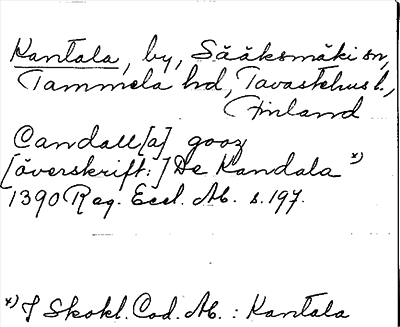 Kantala, by, Sääksmäki sn,
Tammela hd, Tavastehus l.,
Finland
Candall[a] gooz
[överskrift:] De Kandala *)
1390 Reg. Eccl. Ab. s. 197.
*) I Skokl. Cod. Ab. : Kantala